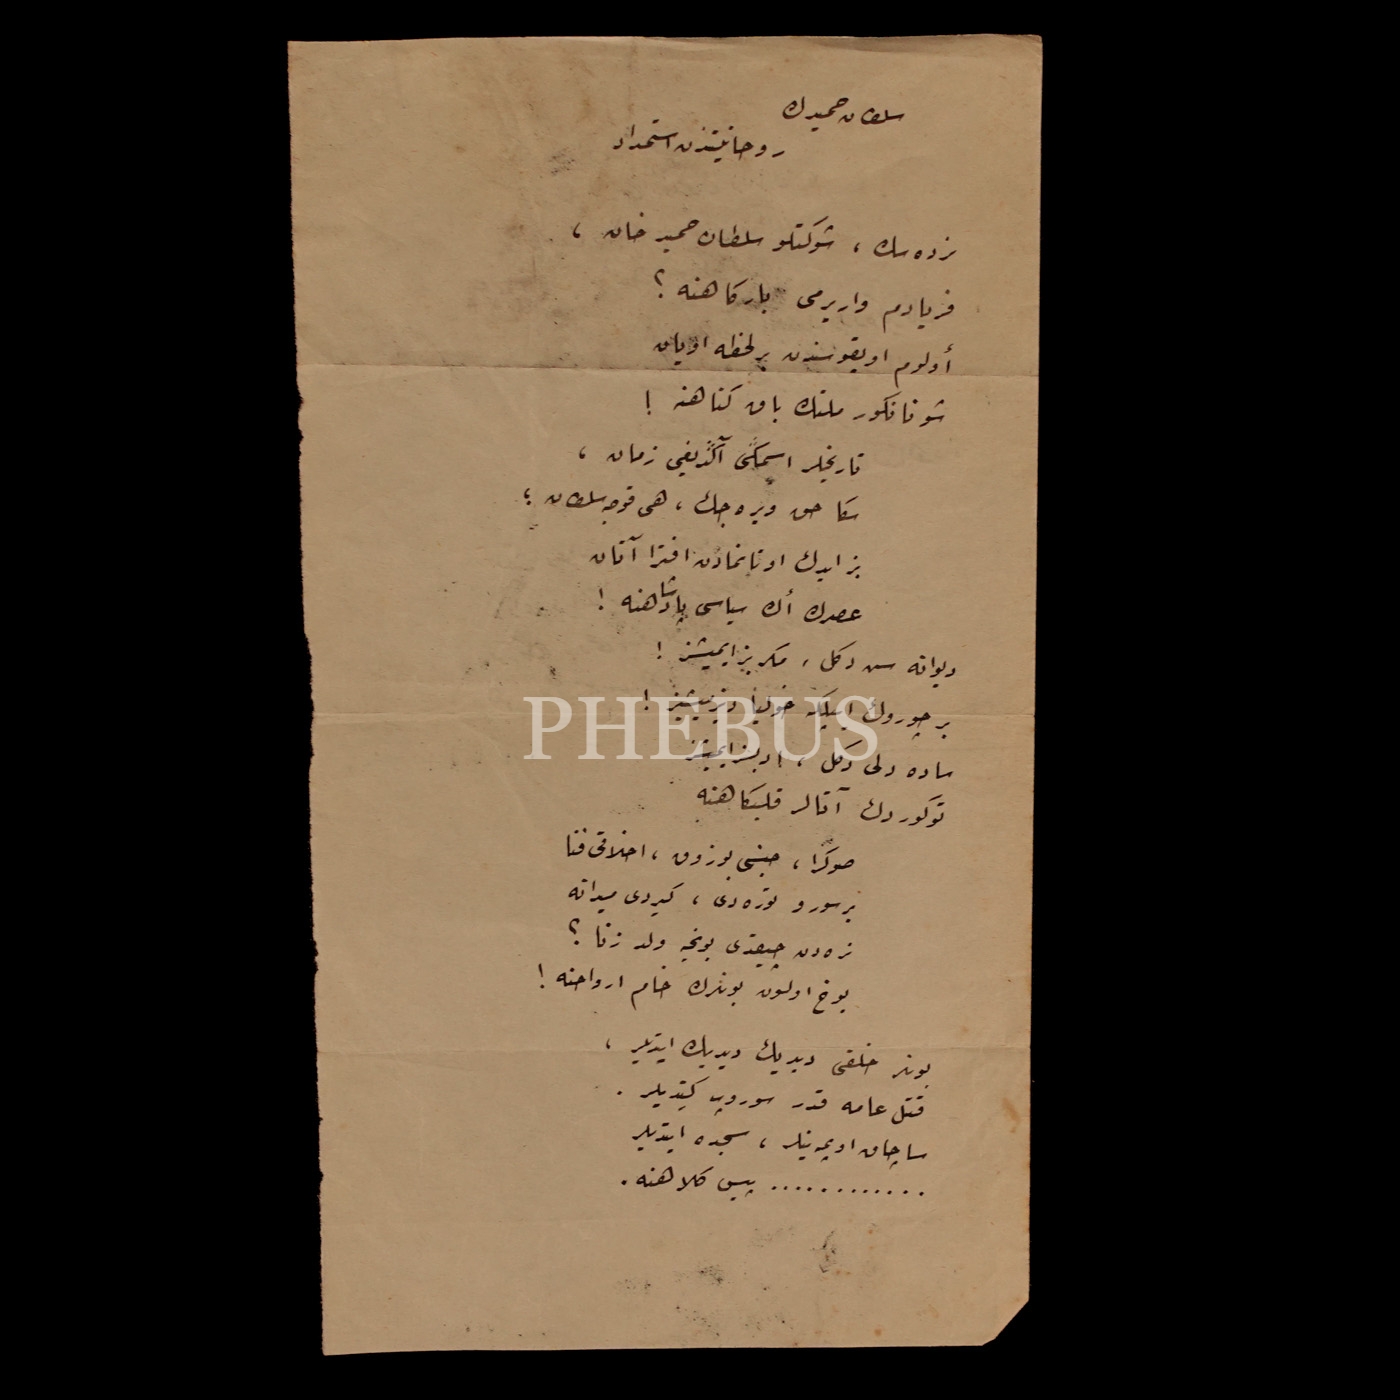 سلطان حمیدك
روحانیتندن استمداد
نرده سك ، شوكتلو سلطان حمید خان ،
فریادم واریرمی بارکاهنه ؟
أولوم اویقوسندن بر لحظه اویان
شو نانکور ملتك باق کناهنه !
تاریخلر اسمکی آکدیغی زمان ،
سکا حق ویره جك ، هی قوجه سلطان ؛
بز ایدك اوتانمادن افترا آتان
عصرك أك سیاسی پادشاهنه !
دیوانه سن دکل ، مکر بز ایمیشز !
بر چوروك ایپلیکه خولیا دیزمیشز !
ساده دلی دکل ، ادبسز ایمیشز
توکوردك آتالر قبلکاهنه
صوکرا ، جنسی بوزوق ، اخلاقی فنا
بر سورو توره دی ، کیردی میدانه
نره دن چیقدی بونجه ولد زنا ؟
یوخ اولسون بونلرك خام ارواحنه !
بونلر خلقی دیدیك دیدیك ایتدیلر ،
قتل عامه قدر سوروب کیتدیلر .
ساچاق اوپمه ینلر ، سجده ایتدیلر
............ پیس کلاهنه .
PHEBUS